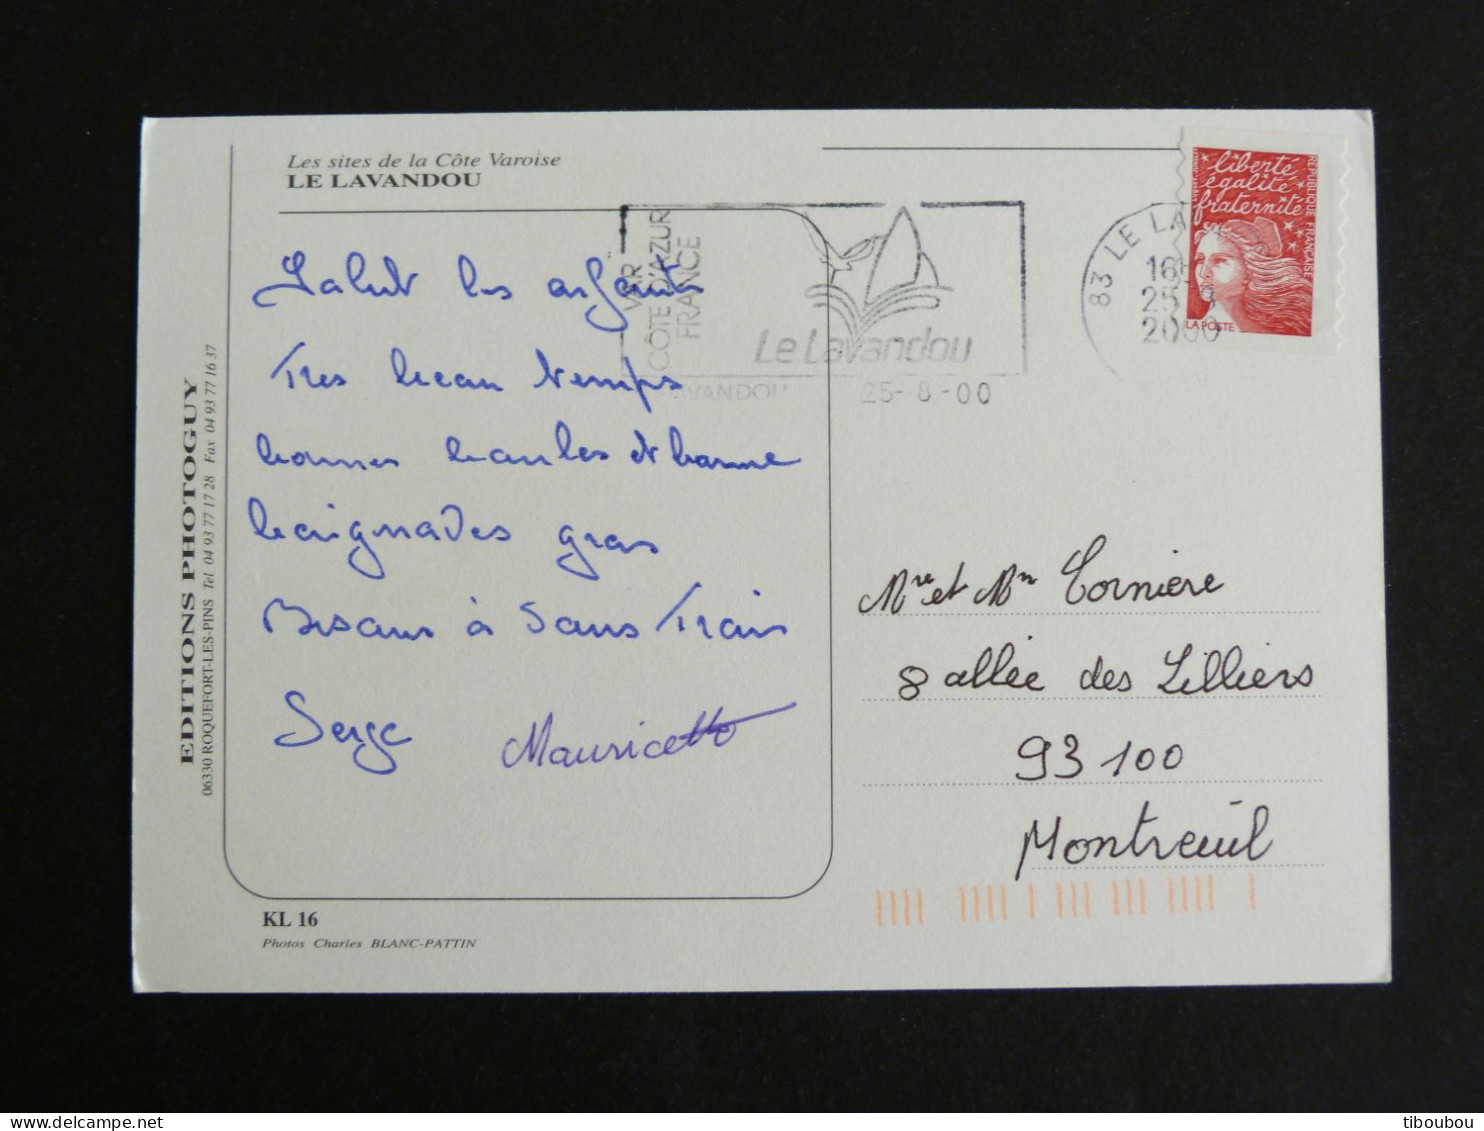 Les sites de la Côte Varoise
LE LAVANDOU
Salut les enfants
Tres beau temps
bonnes boules et bonne
baignades gros
Bisous à Tous Trois
Serge Mauricette
EDITIONS PHOTOGUY
06330 ROQUEFORT-LES-PINS Tel 04 93 77 17 28 Fax 04 93 77 16 37
KL 16
Photos Charles BLANC-PATTIN
VAR
CÔTE D'AZUR
FRANCE
Le Lavandou
AVANDOU 25-8-00
83 LE LA
16
25
2000
liberté
égalité
fraternité
REPUBLIQUE FRANÇAISE
LA POSTE
Mre et Mr Cornière
8 allée des Lilliers
93100
Montreuil
tiboubou